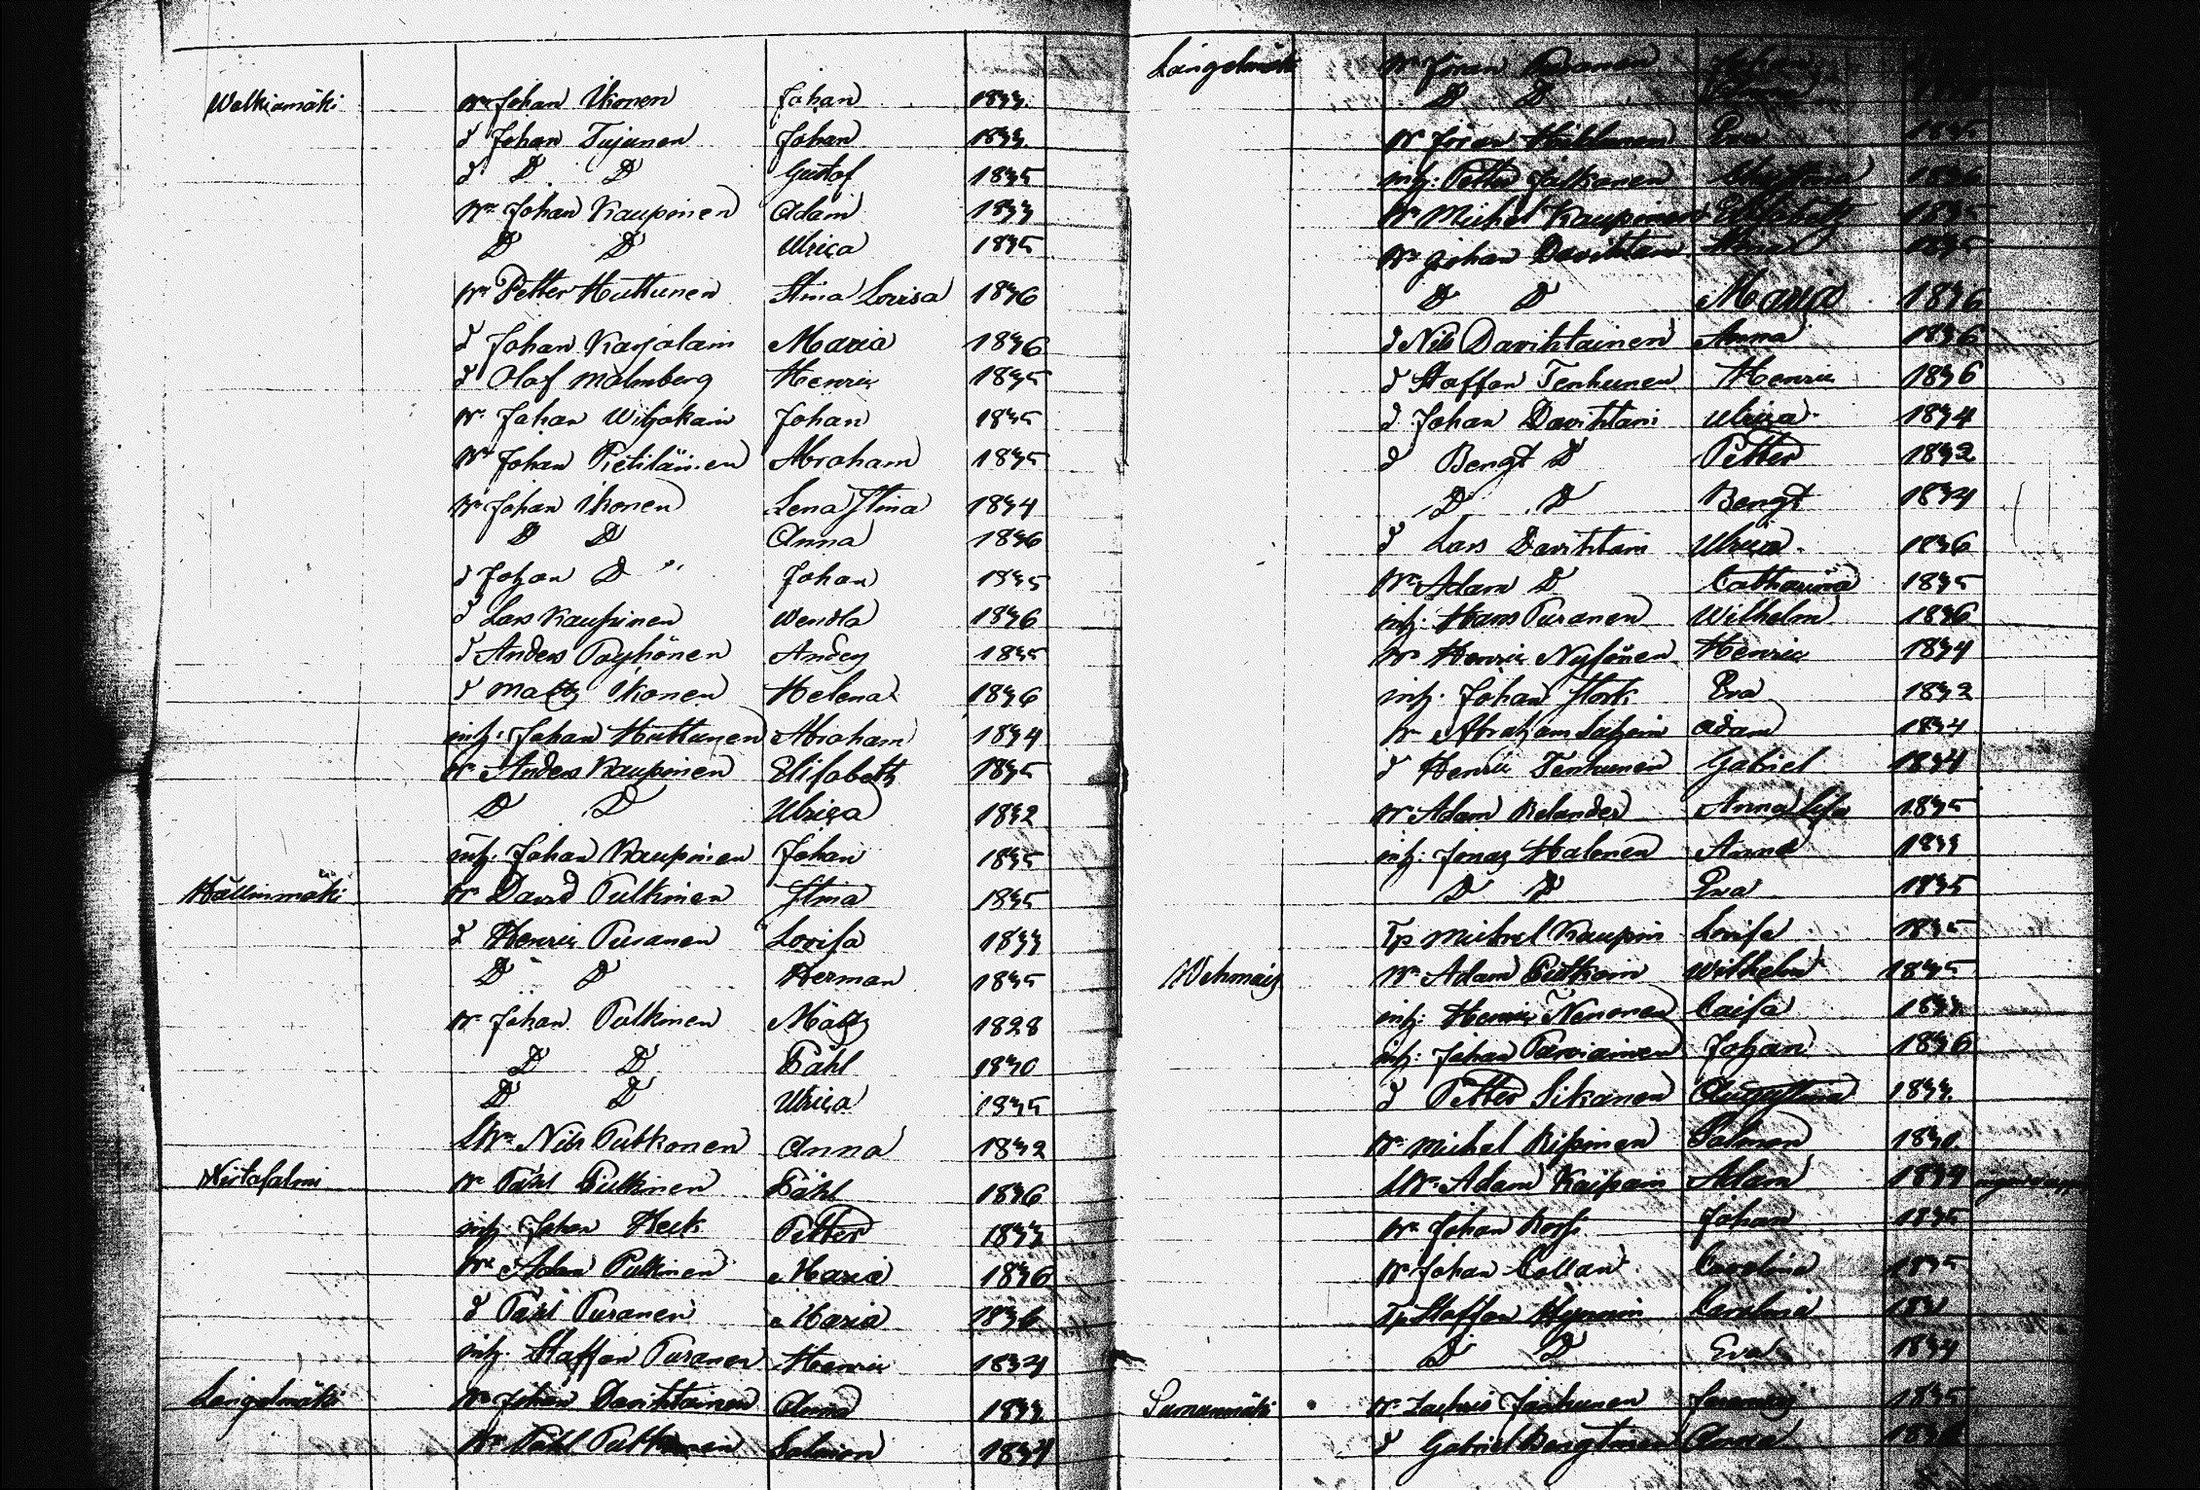 Walkiamäki Wr Johan Ikonen Johan 1833
d Johan Tujunen Johan 1833
d D D Gustof 1835
Wr Johan Kaupinen Adam 1833
D D Ulrica 1835
Wr Petter Huttunen Stina Lovisa 1836
d Johan Karjalain Maria 1836
d Olof Malmberg Henric 1835
Wr Johan Wiljakain Johan 1835
Wr Johan Pietiläinen Abraham 1835
Wr Johan Ikonen Lena Stina 1834
D D Anna 1836
d Johan D " Johan 1835
d Lars Kaupinen Wendla 1836
d Anders Pöyhönen Anders 1835
d Matts Ikonen Helena 1836
inh. Johan Huttunen Abraham 1834
Wr Anders Kaupinen Elisabeth 1835
D D Ulrica 1832
inh. Johan Kaupinen Johan 1835
Hällinmäki Wr David Pulkinen Stina 1835
d Henric Puranen Lovisa 1833
D D Herman 1835
Wr Johan Pulkinen Matts 1828
D D Påhl 1830
D D Ulrica 1835
LWr Nils Putkonen Anna 1832
Wirtasalmi Wr Påhl Pulkinen Påhl 1836
inh. Johan Heck Petter 1833
Wr Adam Pulkinen Maria 1836
d Påhl Puranen Maria 1836
inh. Staffan Puranen Henric 1834
Längelmäki Wr Johan Davihtainen Anna 1833
Wr Påhl Salmon 1834
Längelmäki Wr Jöran Puranen Johan
D D
Wr Jöran Huttunen Eva 1835
inh. Petter Jalkanen Christina 1836
Wr Michel Kaupinen Elisabeth 1835
Wr Johan Davihtain Anna 1835
D D Maria 1836
d Nils Davihtainen Anna 1836
d Staffan Tenhunen Henric 1836
d Johan Davihtain Ulrica 1834
d Bengt D Petter 1832
D D Bengt 1834
d Lars Davihtain Ulrica 1836
Wr Adam D Catharina 1835
inh. Hans Puranen Wilhelm 1836
Wr Henric Nysönen Henric 1834
inh. Johan Stork Eva 1832
Wr Abraham Adam 1834
d Henric Tenhunen Gabriel 1834
Wr Adam Relander Anna Lisa 1835
inh. Jonas Halonen Anna 1833
D D Eva 1835
Tp Michel Kaupin Lovisa 1835
Wehmais Wr Adam Wilhelm 1835
inh. Henric Nenonen Caisa 1833
inh. Johan Parviainen Johan 1836
d Petter Sikanen Augustina 1833
Wr Michel Ripinen Salmon 1830
LWr Adam Kaipain Adam 1834
Wr Johan Johan 1835
Wr Johan Collan Carolina 1835
Tp Staffan Hynnin Carolina
D D Eva 1834
Surnumäki Wr Zachris Janhunen 1835
d Gabriel Anna